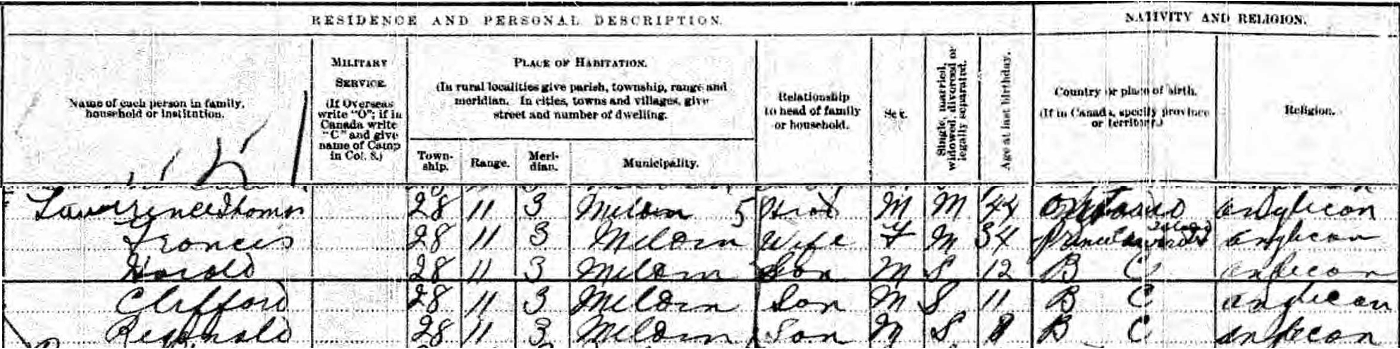 RESIDENCE AND PERSONAL DESCRIPTION. NATIVITY AND RELIGION.
Name of each person in family, household or institution.
MILITARY SERVICE.
(If Overseas write "O"; if in Canada write "C" and give name of Camp in Col. 8.)
PLACE OF HABITATION.
(In rural localities give parish, township, range and meridian. In cities, towns and villages, give street and number of dwelling.
Township. Range. Meridian. Municipality.
Relationship to head of family or household.
Sex.
Single, married, widowed, divorced or legally separated.
Age at last birthday.
Country or place of birth.
(If in Canada, specify province or territory.)
Religion.
Lawrence Thomas 28 11 3 Mildin 5 Head M M 44 Ontario Anglican
Frances 28 11 3 Mildin Wife F M 34 Prince Edward Island Anglican
Harold 28 11 3 Mildin Son M S 12 B C Anglican
Clifford 28 11 3 Mildin Son M S 11 B C Anglican
Reginald 28 11 3 Mildin Son M S 8 B C Anglican